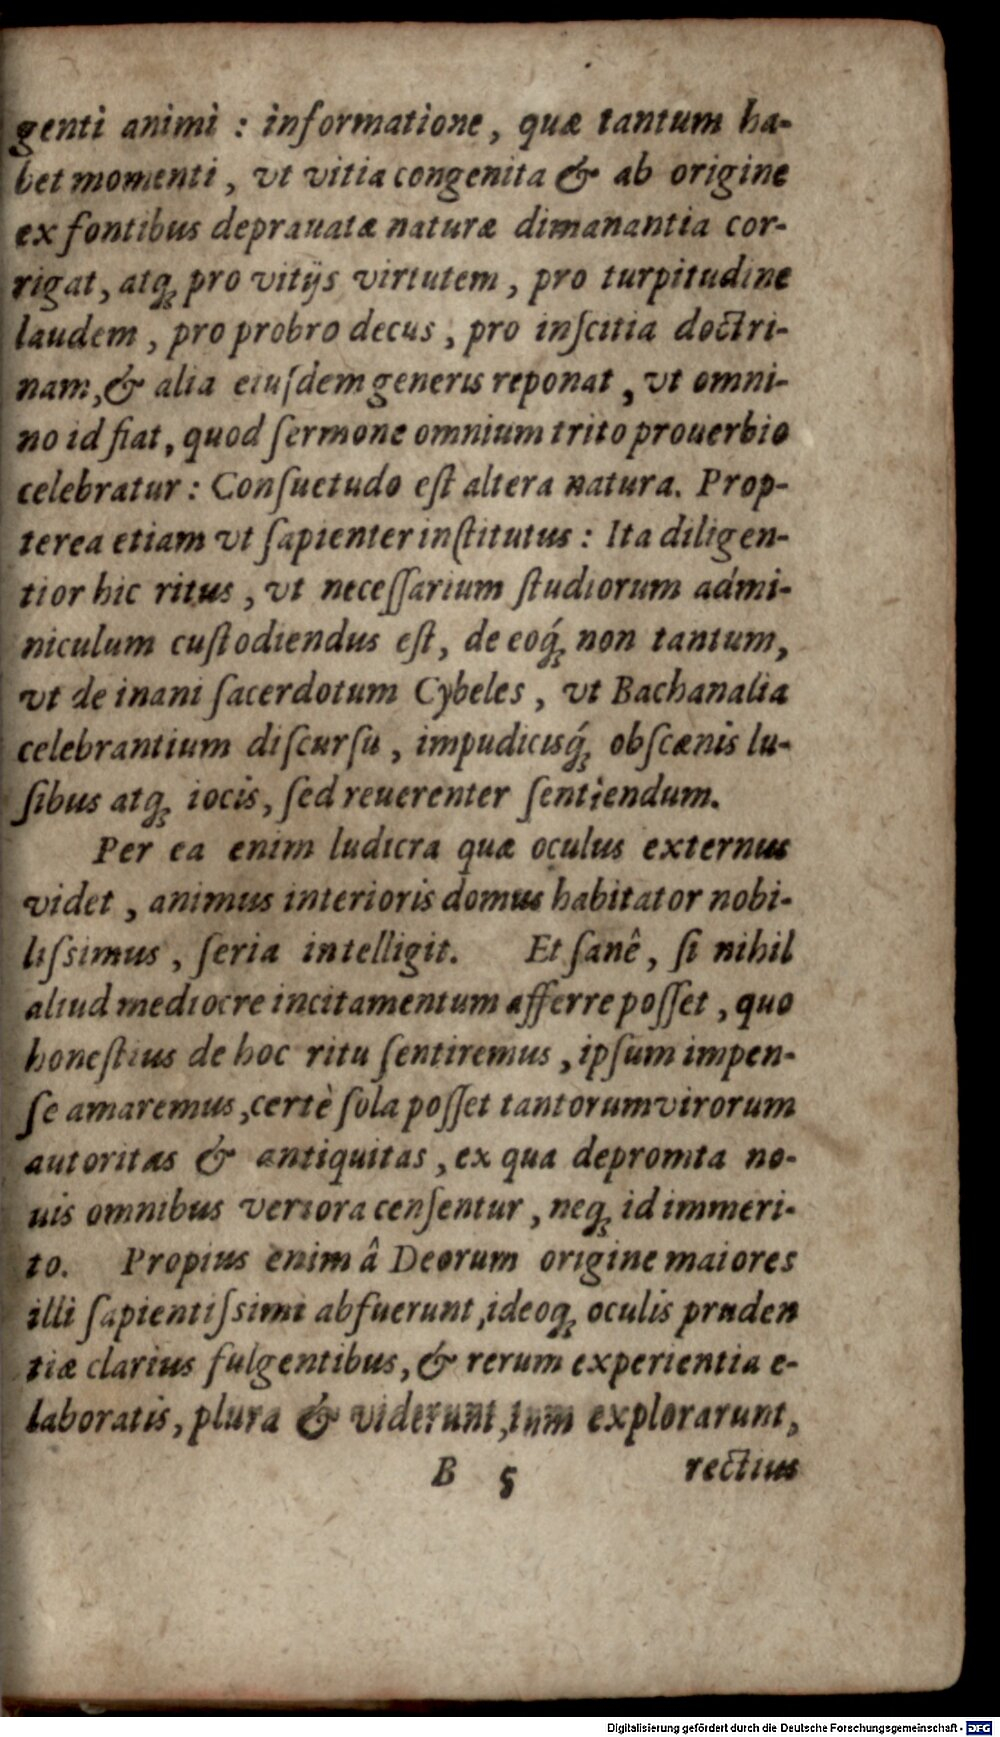 genti animi : informatione, quæ tantum ha-
bet momenti, vt vitia congenita & ab origine
ex fontibus deprauatæ naturæ dimanantia cor-
rigat, atq́; pro vitijs virtutem, pro turpitudine
laudem, pro probro decus, pro inſcitia doctri-
nam, & alia eiuſdem generis reponat, vt omni-
no id fiat, quod ſermone omnium trito prouerbio
celebratur : Conſuetudo eſt altera natura. Prop-
terea etiam vt ſapienter inſtitutus : Ita diligen-
tior hic ritus, vt neceſſarium ſtudiorum admi-
niculum cuſtodiendus eſt, de eoq́; non tantum,
vt de inani ſacerdotum Cybeles, vt Bachanalia
celebrantium diſcurſu, impudicisq́; obſcænis lu-
ſibus atq; iocis, ſed reuerenter ſentiendum.
Per ea enim ludicra quæ oculus externus
videt, animus interioris domus habitator nobi-
liſsimus, ſeria intelligit. Et ſanê, ſi nihil
aliud mediocre incitamentum afferre poſſet, quo
honeſtius de hoc ritu ſentiremus, ipſum impen-
ſe amaremus, certè ſola poſſet tantorum virorum
autoritas & antiquitas, ex qua depromta no-
uis omnibus veriora cenſentur, neq; id immeri-
to. Propius enim â Deorum origine maiores
illi ſapientiſsimi abfuerunt, ideoq; oculis pruden
tiæ clarius fulgentibus, & rerum experientia e-
laboratis, plura & viderunt, tum explorarunt,
B 5 rectius
Digitalisierung gefördert durch die Deutsche Forschungsgemeinschaft - DFG